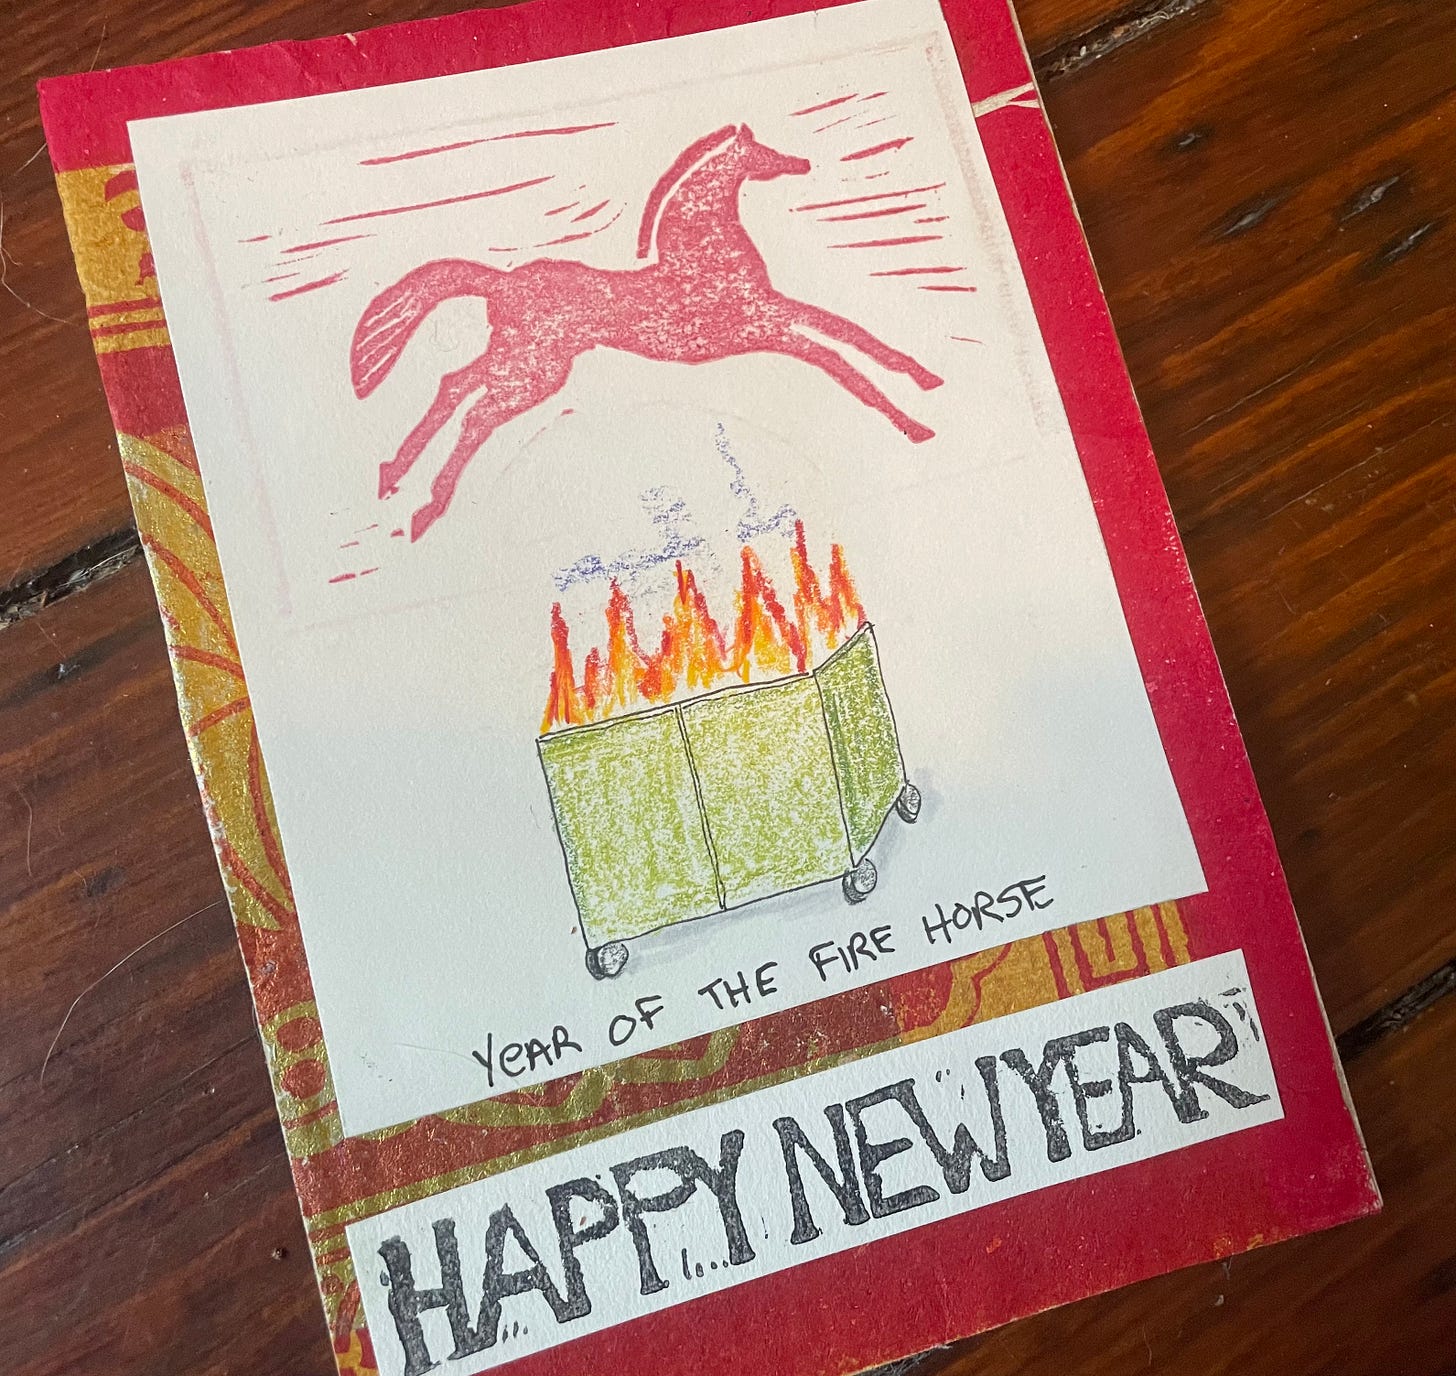 YEAR OF THE FIRE HORSE
HAPPY NEW YEAR